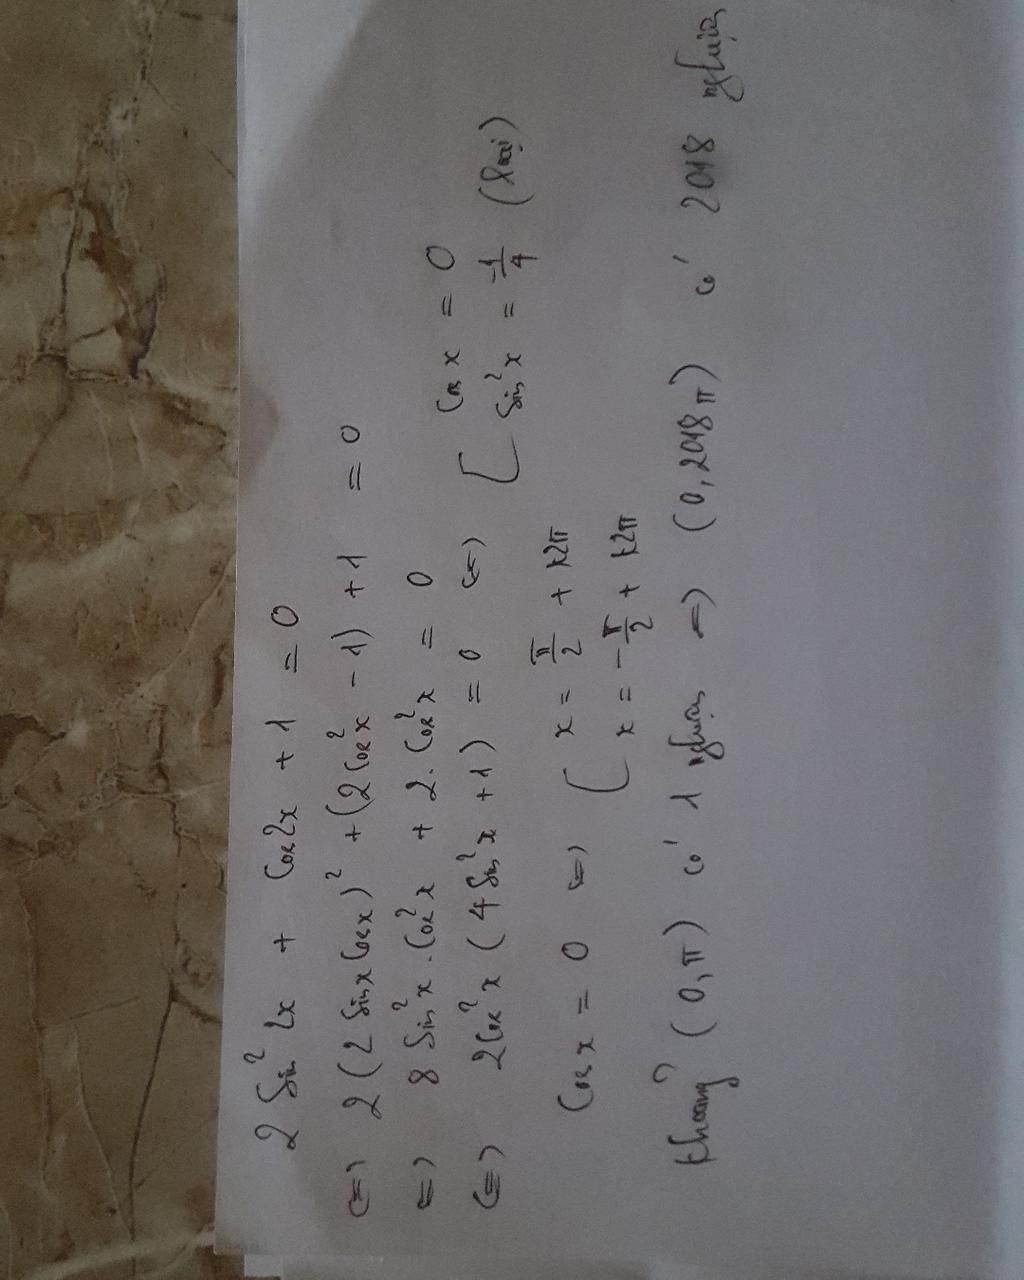 2 Sin² 2x + Cos2x + 1 = 0
<=> 2(2 Sinx Cosx)² + (2 Cos²x - 1) + 1 = 0
<=> 8 Sin²x . Cos²x + 2. Cos²x = 0
<=> 2Cos²x (4 Sin²x + 1) = 0 <=> [ Cos x = 0
Sin²x = -1/4 (loại)
Cos x = 0 <=> [ x = π/2 + k2π
x = -π/2 + k2π
Khoảng (0,π) có 1 nghiệm => (0,2018π) có 2018 nghiệm